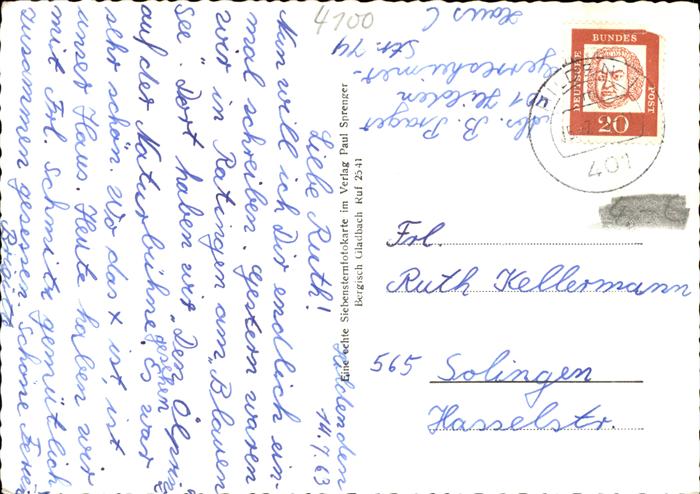 4100
Hilden den
14.7.63
Liebe Ruth!
Nun will ich Dir endlich ein-
mal schreiben. Gestern waren
wir in Ratingen am „Blauen
See". Dort haben wir „Der Ölprinz"
auf der Naturbühne gesehen. Es war
sehr schön. Wo das x ist, ist
unser Haus. Heute haben wir
mit Frl. Schmitz gemütlich
zusammen gesessen. Schöne Ferien
Brigitte
Eine echte Siebensternfotokarte im Verlag Paul Sprenger
Bergisch Gladbach Ruf 2541
Abs. B. Prager
401 Hilden
Gerresheimer-
Str. 74
Haus C
DEUTSCHE
BUNDES
POST
20
HILDEN
401
Frl.
Ruth Kellermann
565 Solingen
Hasselstr.